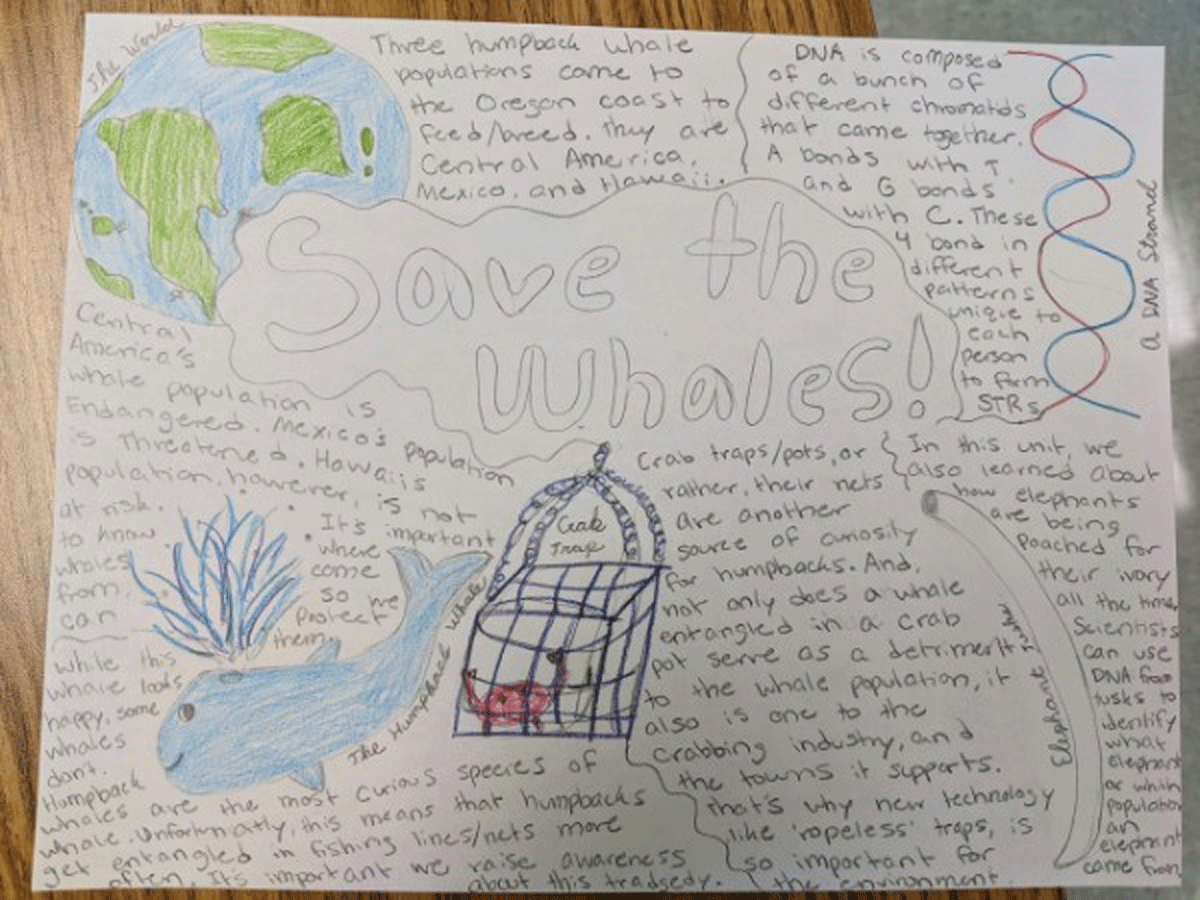 The World
Three humpback whale
populations come to
the Oregon coast to
feed/breed. They are
Central America,
Mexico, and Hawaii.
DNA is composed
of a bunch of
different chromatids
that came together.
A bonds with T
and G bonds
with C. These
4 bond in
different
patterns
unique to
each
person
to form
STRs
a DNA Strand
Save the
Whales!
Central
America's
whale population is
Endangered. Mexico's population
is Threatened. Hawaii's
population, however, is not
at risk. It's important
to know where
whales come
from, so we
can protect
them.
While this
whale looks
happy, some
whales
don't.
Humpback
whales are the most curious species of
whale. Unfortunatly, this means that humpbacks
get entangled in fishing lines/nets more
often. It's important we raise awareness
about this tradsedy.
The Humpback Whale
Crab
Trap
Crab traps/pots, or
rather, their nets
are another
source of curiosity
for humpbacks. And,
not only does a whale
entangled in a crab
pot serve as a detriment
to the whale population, it
also is one to the
crabbing industry, and
the towns it supports.
That's why new technology
like 'ropeless' traps, is
so important for
the environment.
In this unit, we
also learned about
how elephants
are being
poached for
their ivory
all the time,
Scientists
can use
DNA from
tusks to
identify
what
elephant
or which
population
an
elephant
came from
Elephant Tusk